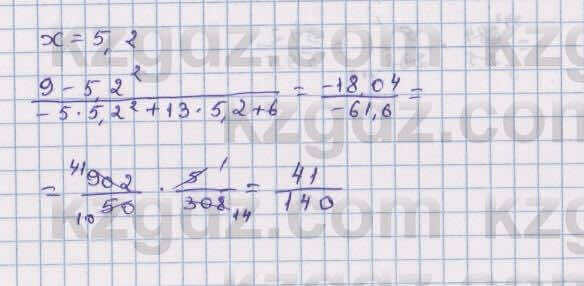 x = 5,2
(9 - 5,2²)/(-5·5,2² + 13·5,2 + 6) = (-18,04)/(-61,6) =
= (⁴¹902)/(₁₀50) · (5¹)/(308₁₄) = 41/140
kzgdz.com